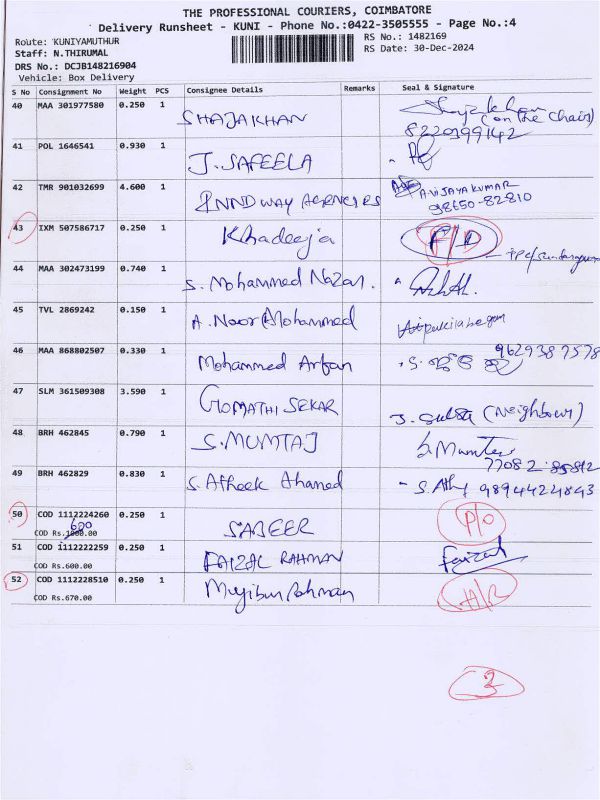 THE PROFESSIONAL COURIERS, COIMBATORE
Delivery Runsheet - KUNI - Phone No.:0422-3505555 - Page No.:4
Route: KUNIYAMUTHUR
RS No.: 1482169
Staff: N.THIRUMAL
RS Date: 30-Dec-2024
DRS No.: DCJB148216904
Vehicle: Box Delivery
S No Consignment No Weight PCS Consignee Details Remarks Seal & Signature
40 MAA 301977580 0.250 1 SHAJAKHAN Shajakhan
(on the chair)
8220399142
41 POL 1646541 0.930 1 J. SAFEELA
42 TMR 901032699 4.600 1 INNDWAY AGENCIES A VIJAYAKUMAR
98650-82810
43 IXM 507586717 0.250 1 Khadeeja F/D
44 MAA 302473199 0.740 1 S. Mohammed Nazar.
45 TVL 2869242 0.150 1 A. Noor Mohammed
46 MAA 868802507 0.330 1 Mohammed Arfan 9629387578
47 SLM 361509308 3.590 1 GOMATHI SEKAR J. (Neighbour)
48 BRH 462845 0.790 1 S. MUMTAJ S. Mumtaj
77082 85812
49 BRH 462829 0.830 1 S. Atheek Ahamed 9894424843
50 COD 1112224260 0.250 1 SABEER P/O
COD Rs. 600
51 COD 1112222259 0.250 1 FAIZAL RAHMAN Faizal
COD Rs.600.00
52 COD 1112228510 0.250 1 Mujibur Rahman H/R
COD Rs.670.00
3